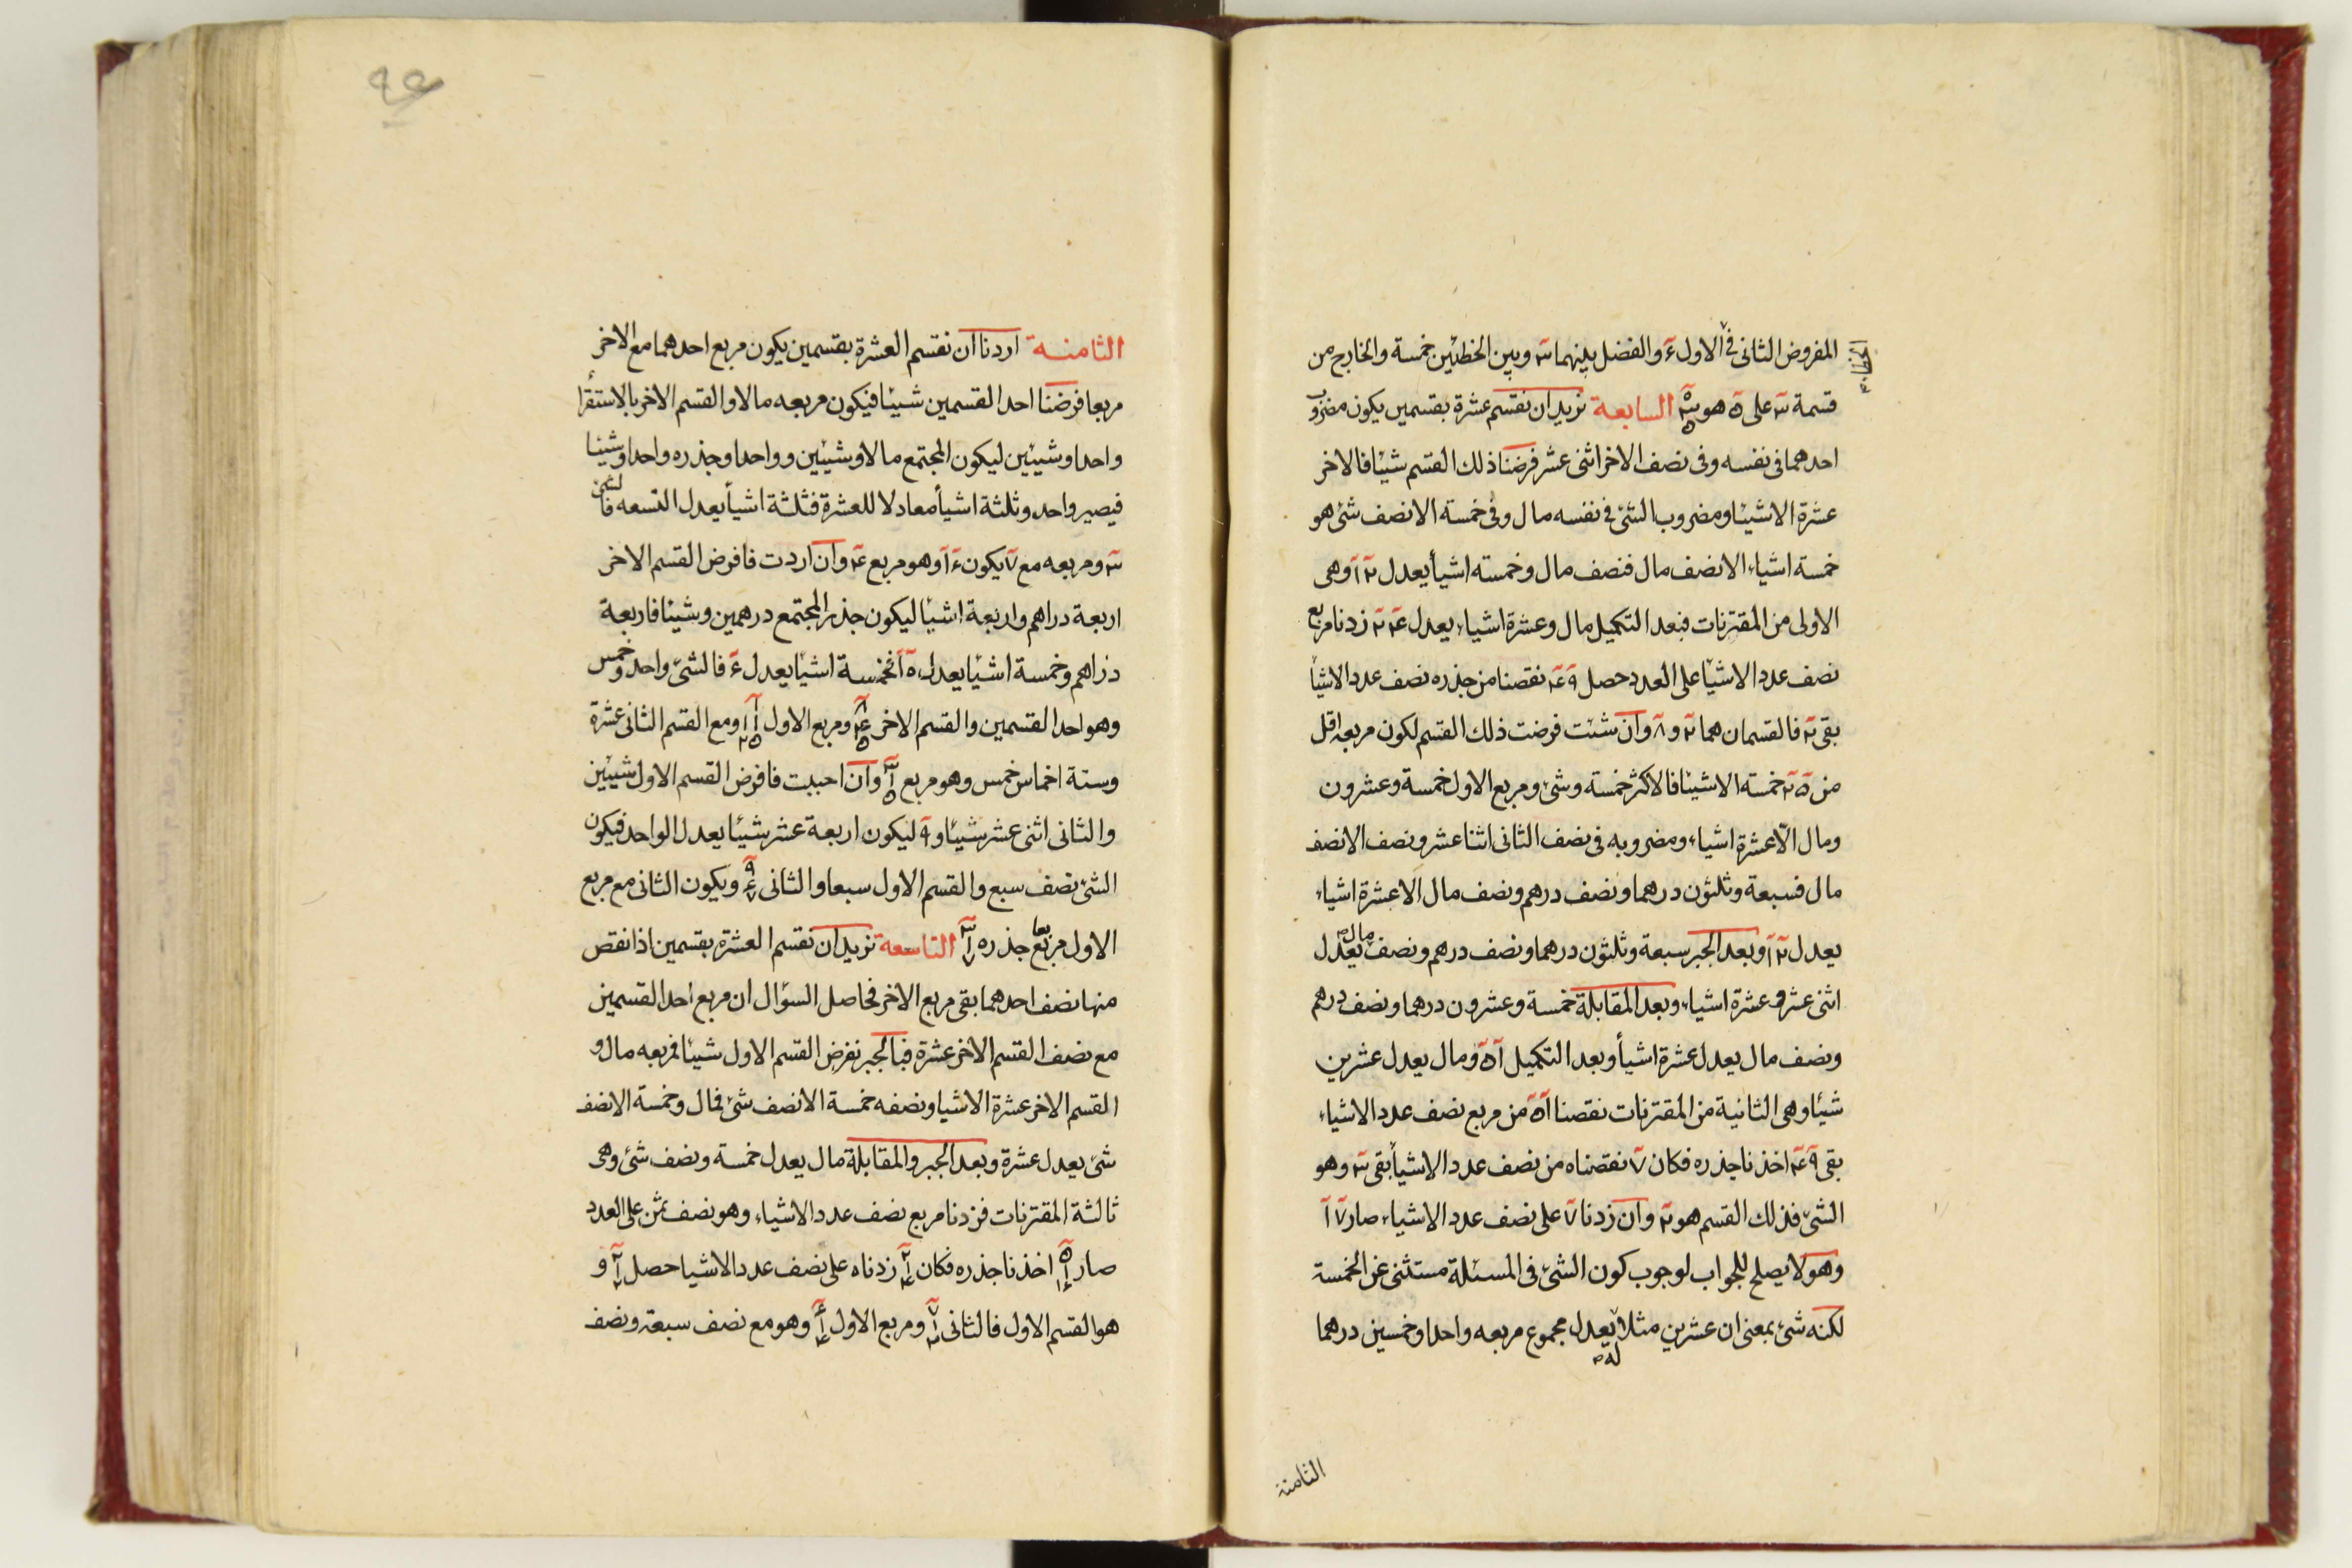 المفروض الثانى فى الاول ٤ والفضل بينهما ٣ وبين الخطئين خمسة والخارج من
قسمة ٣ على ٥ هو السابعة نريد ان نقسم عشرة بقسمين يكون مضروب
احدهما فى نفسه وفى نصف الاخر اثنى عشر فرضنا ذلك القسم شيئا فالاخر
عشرة الا شيئا ومضروب الشئ فى نفسه مال وفى خمسة الا نصف شئ هو
خمسة اشياء الا نصف مال فنصف مال وخمسه اشيأ يعدل ١٢ وهى
الاولى من المقترنات فبعد التكميل مال وعشرة اشياء يعدل ٢٤ زدنا مربع
نصف عدد الاشيأ على العدد حصل ٤٩ نقصنا من جذره نصف عدد الاشيأ
بقى ٢ فالقسمان هما ٢ و ٨ وان شئت فرضت ذلك القسم لكون مربعه اقل
من ٢٥ خمسه الا شيئا فالاكثر خمسة وشئ ومربع الاول خمسة وعشرون
ومال الّا عشرة اشياء ومضروبه فى نصف الثانى اثنا عشر ونصف الا نصف
مال فسبعة وثلثون درهما ونصف درهم ونصف مال الا عشرة اشياء
يعدل ١٢ وبعد الجبر سبعة وثلثون درهما ونصف درهم ونصف مال يعدل
اثنى عشر وعشرة اشياء وبعد المقابلة خمسة وعشرون درهما ونصف درهم
ونصف مال يعدل عشرة اشيأ وبعد التكميل ٥١ ومال يعدل عشرين
شيئا وهى الثانية من المقترنات نقصنا ٥١ من مربع نصف عدد الاشياء
بقى ٤٩ اخذنا جذره فكان ٧ نقصناه من نصف عدد الاشيأ بقى ٣ وهو
الشئ فذلك القسم هو ٢ وان زدنا ٧ على نصف عدد الاشياء صار ١٧
وهو لا يصلح للجواب لوجوب كون الشئ فى المسئلة مستثنى عن الخمسة
لكنه شئ بمعنى ان عشرين مثلا له يعدل مجموع مربعه واحدا وخمسين درهما
الثامنة
٩٥
الثامنة اردنا ان نقسم العشرة بقسمين يكون مربع احدهما مع الاخر
مربعا فرضنا احد القسمين شيئا فيكون مربعه مالا والقسم الاخر بالاستقرأ
واحدا وشيئين ليكون المجتمع مالا وشيئين وواحدا وجذره واحدا وشيئا
فيصير واحد وثلثة اشيأ معادلا للعشرة فثلثة اشيأ يعدل التسعه فالشئ
٣ ومربعه مع ٧ يكون ١٦ وهو مربع ٤ وان اردت فافرض القسم الاخر
اربعة دراهم واربعة اشيئا ليكون جذر المجتمع درهمين وشيئا فاربعة
دراهم وخمسة اشيئا يعدل ١٠ فخمسة اشيئا يعدل ٦ فالشئ واحد وخمس
وهو احد القسمين والقسم الاخر ومربع الاول ومع القسم الثانى عشرة
وستة اخماس خمس وهو مربع وان احببت فافرض القسم الاول شيئين
والثانى اثنى عشر شيئا و ٩ ليكون اربعة عشر شيئا يعدل الواحد فيكون
الشئ نصف سبع والقسم الاول سبعا والثانى ويكون الثانى مع مربع
الاول مربعا جذره التاسعة نريد ان نقسم العشرة بقسمين اذا نقص
منها نصف احدهما بقى مربع الاخر فحاصل السؤال ان مربع احد القسمين
مع نصف القسم الاخر عشرة فبالجبر نفرض القسم الاول شيئا فمربعه مال و
القسم الاخر عشرة الا شيأ ونصفه خمسة الا نصف شئ فمال وخمسة الا نصف
شئ يعدل عشرة وبعد الجبر والمقابلة مال يعدل خمسة ونصف شئ وهى
ثالثة المقترنات فزدنا مربع نصف عدد الاشياء وهو نصف ثمن على العدد
صار اخذنا جذره فكان زدناه على نصف عدد الاشيا حصل و
هو القسم الاول فالثانى ومربع الاول وهو مع نصف سبعة ونصف